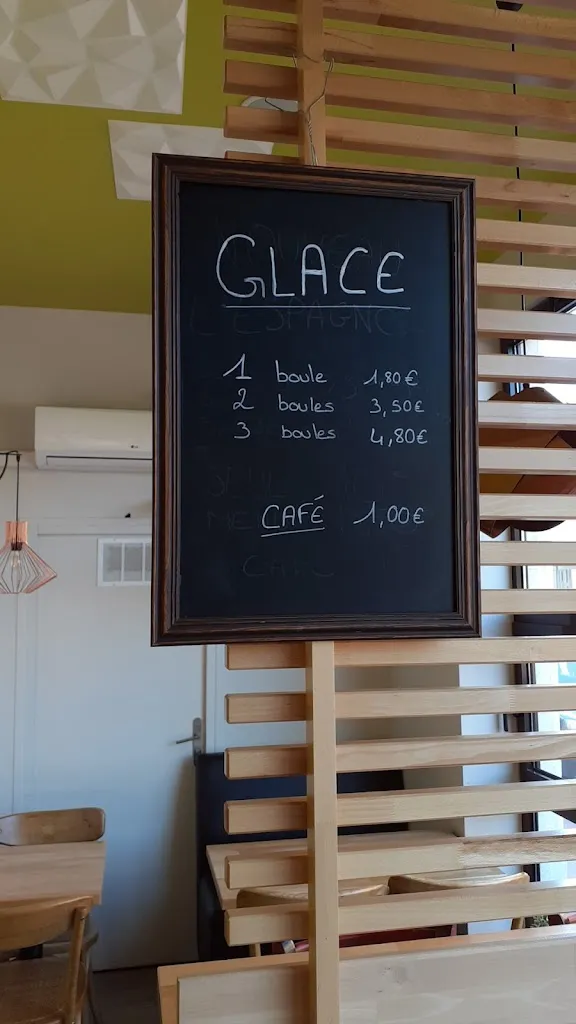 GLACE
1 boule 1,80€
2 boules 3,50€
3 boules 4,80€
CAFÉ 1,00€